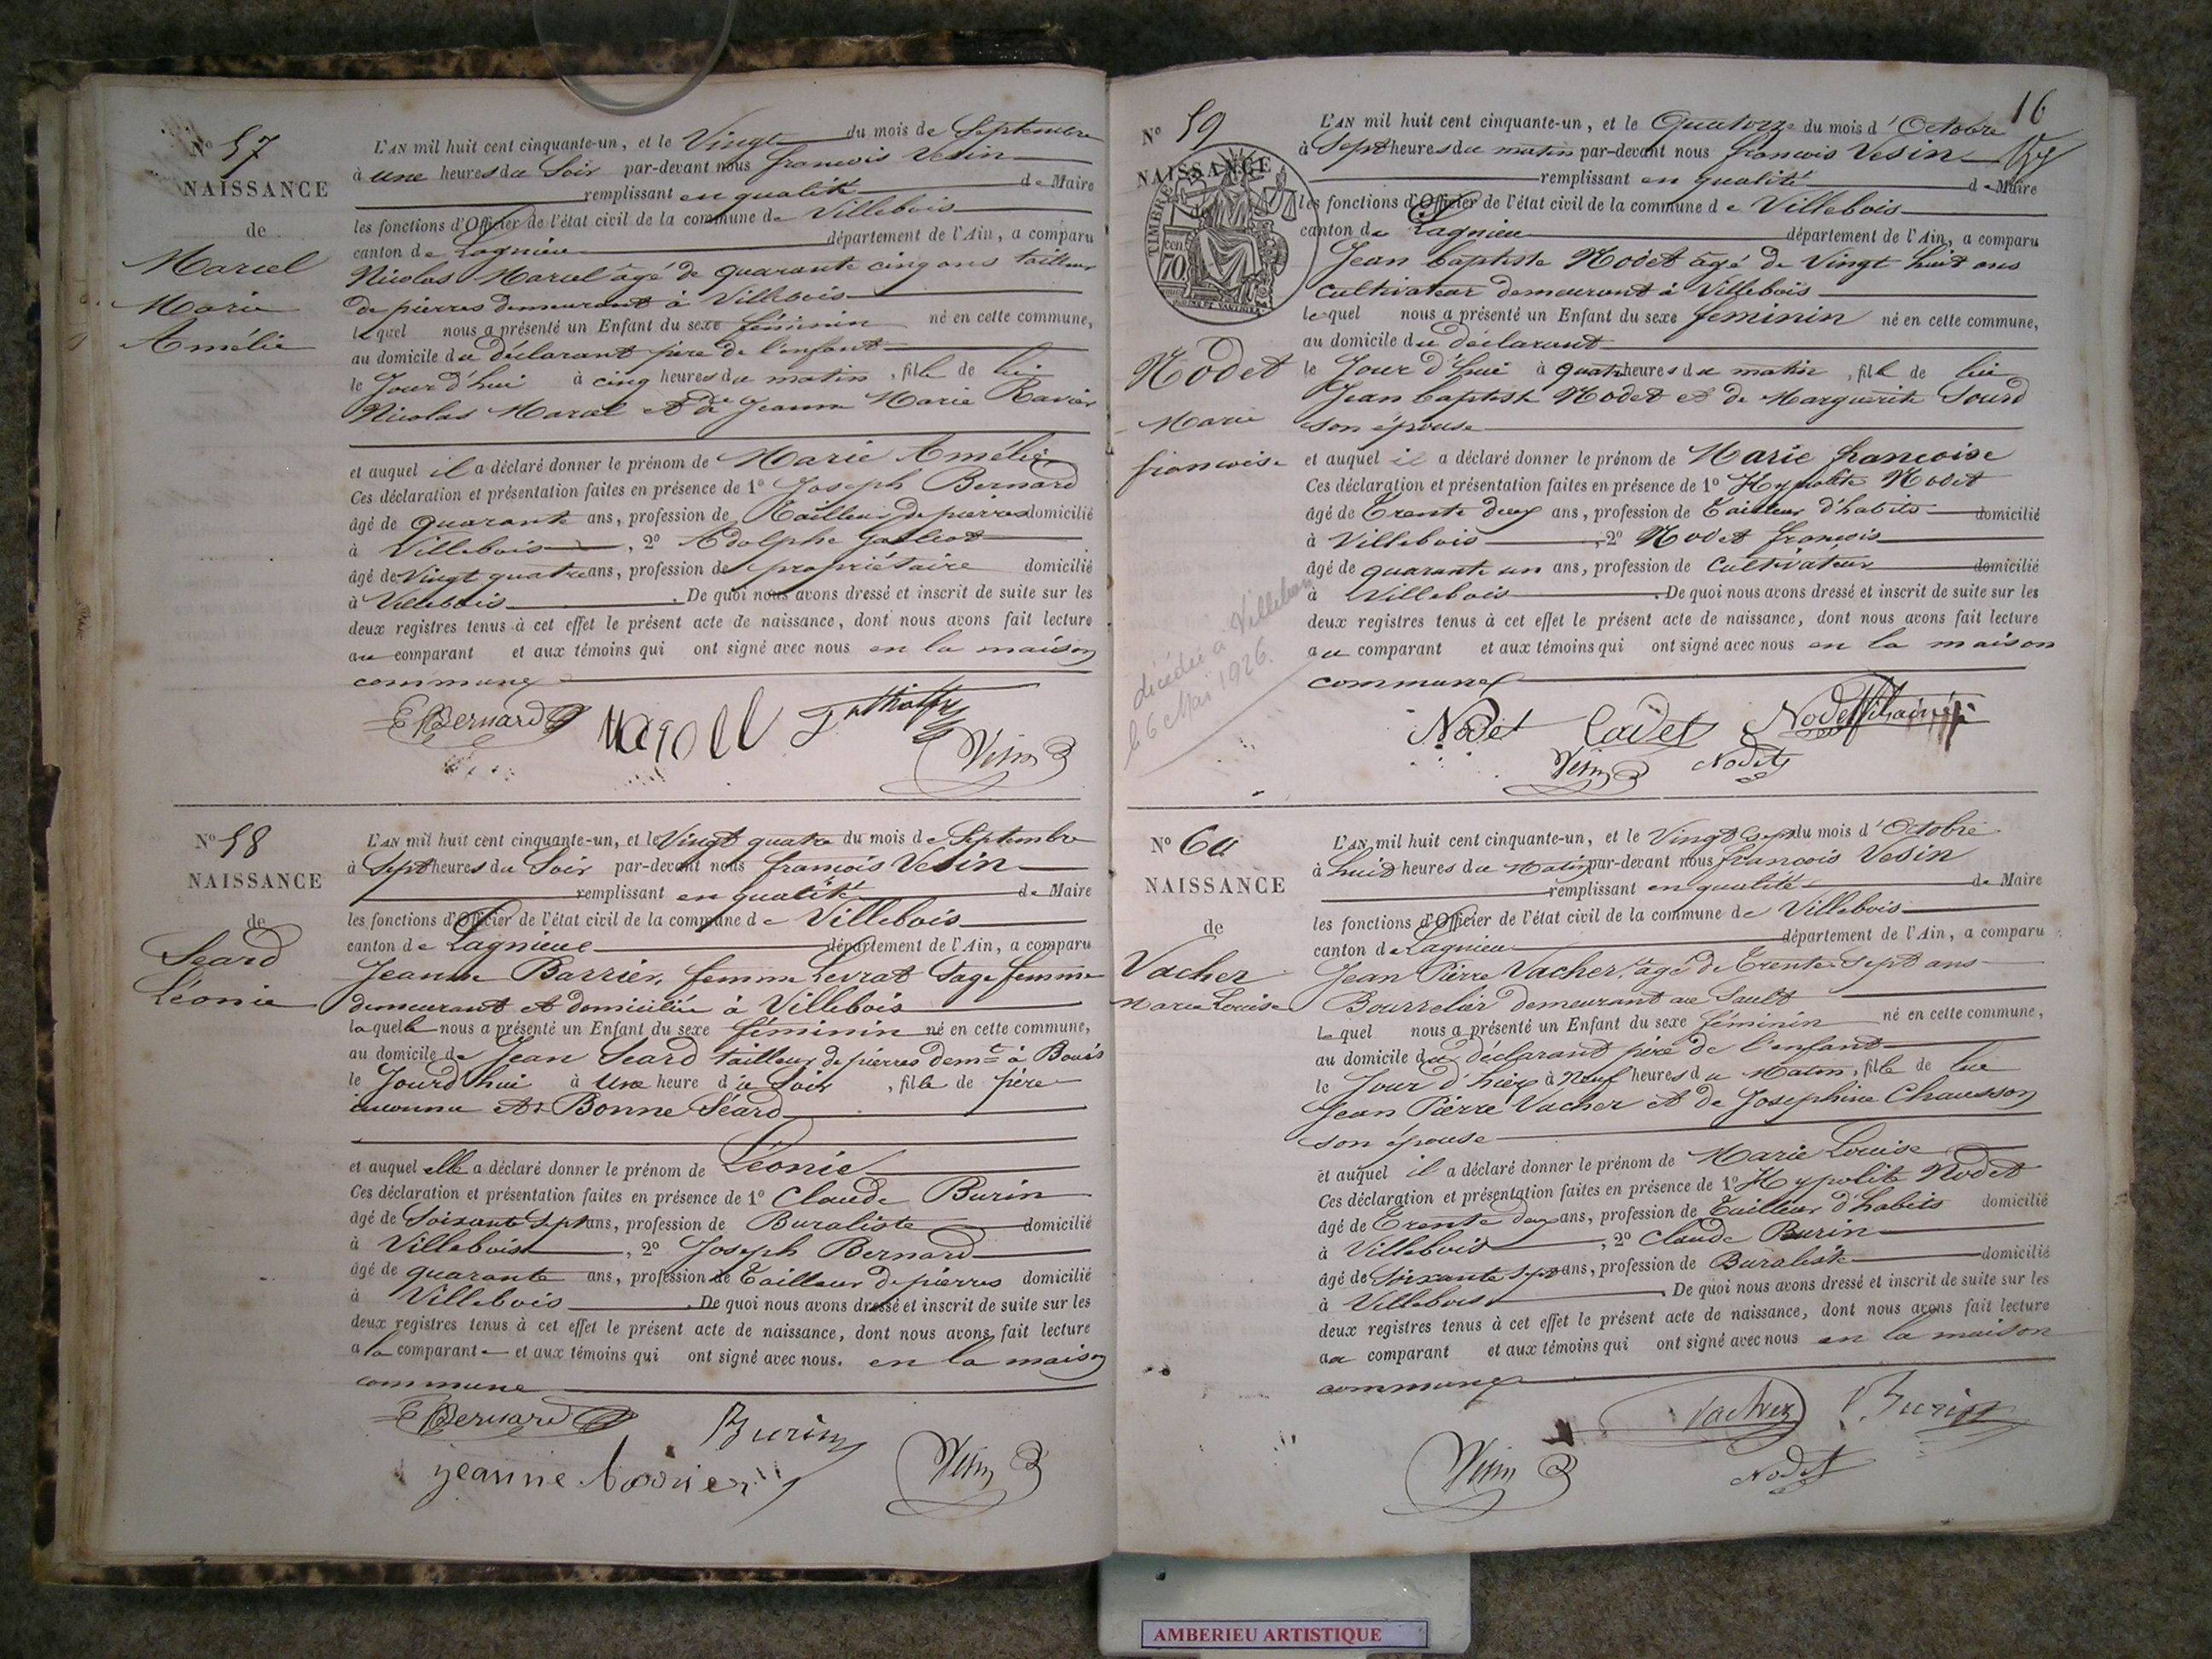 Nº 57
NAISSANCE
de
Marcel
Marie
Amélie
L'AN mil huit cent cinquante-un, et le Vingt du mois de Septembre
à une heures du Soir par-devant nous françois Vesin
remplissant en qualité de Maire
les fonctions d'Officier de l'état civil de la commune de Villebois
canton de Lagnieu département de l'Ain, a comparu
Nicolas Marcel âgé de quarante cinq ans tailleur
de pierres demeurant à Villebois
lequel nous a présenté un Enfant du sexe féminin né en cette commune,
au domicile du déclarant père de l'enfant
le Jour d'hui à cinq heures du matin, fille de lui
Nicolas Marcel et de Jeanne Marie Ravier
et auquel il a déclaré donner le prénom de Marie Amélie
Ces déclaration et présentation faites en présence de 1º Joseph Bernard
âgé de quarante ans, profession de Tailleur de pierres domicilié
à Villebois, 2º Adolphe
âgé de Vingt quatre ans, profession de propriétaire domicilié
à Villebois. De quoi nous avons dressé et inscrit de suite sur les
deux registres tenus à cet effet le présent acte de naissance, dont nous avons fait lecture
au comparant et aux témoins qui ont signé avec nous en la maison
commune
Bernard
Vesin
Nº 58
NAISSANCE
de
Seard
Léonie
L'AN mil huit cent cinquante-un, et le Vingt quatre du mois de Septembre
à Sept heures du Soir par-devant nous françois Vesin
remplissant en qualité de Maire
les fonctions d'Officier de l'état civil de la commune de Villebois
canton de Lagnieue département de l'Ain, a comparu
Jeanne Barrier, femme Levrat Sage femme
demeurant et domiciliée à Villebois
laquelle nous a présenté un Enfant du sexe féminin né en cette commune,
au domicile de Jean Seard tailleur de pierres demt à Bouis
le Jourd'hui à Une heure du Soir, fille de père
inconnu et de Bonne Séard
et auquel elle a déclaré donner le prénom de Léonie
Ces déclaration et présentation faites en présence de 1º Claude Burin
âgé de Soixante Sept ans, profession de Buraliste domicilié
à Villebois, 2º Joseph Bernard
âgé de quarante ans, profession de Tailleur de pierres domicilié
à Villebois. De quoi nous avons dressé et inscrit de suite sur les
deux registres tenus à cet effet le présent acte de naissance, dont nous avons fait lecture
a la comparante et aux témoins qui ont signé avec nous. en la maison
commune
Bernard Burin
jeanne barrier Vesin
16
Nº 59
NAISSANCE
TIMBRE
70 cent
Nodet
Marie
francoise
décédée à Villebois
le 6 Mai 1926.
L'AN mil huit cent cinquante-un, et le Quatorze du mois d'Octobre
à Sept heures du matin par-devant nous francois Vesin
remplissant en qualité de Maire
les fonctions d'Officier de l'état civil de la commune de Villebois
canton de Lagnieu département de l'Ain, a comparu
Jean baptiste Nodet âgé de Vingt huit ans
Cultivateur demeurant à Villebois
lequel nous a présenté un Enfant du sexe feminin né en cette commune,
au domicile du déclarant
le Jour d'hui à quatre heures du matin, fille de lui
Jean baptiste Nodet et de Marguerite Sourd
son épouse
et auquel il a déclaré donner le prénom de Marie francoise
Ces déclaration et présentation faites en présence de 1º Hypolite Nodet
âgé de Trente deux ans, profession de Tailleur d'habits domicilié
à Villebois, 2º Nodet françois
âgé de quarante un ans, profession de Cultivateur domicilié
à Villebois. De quoi nous avons dressé et inscrit de suite sur les
deux registres tenus à cet effet le présent acte de naissance, dont nous avons fait lecture
au comparant et aux témoins qui ont signé avec nous en la maison
commune
Nodet Cadet Nodet
Vesin Nodet
Nº 60
NAISSANCE
de
Vacher
Marie Louise
L'AN mil huit cent cinquante-un, et le Vingt Sept du mois d'Octobre
à huit heures du Matin par-devant nous francois Vesin
remplissant en qualité de Maire
les fonctions d'Officier de l'état civil de la commune de Villebois
canton de Lagnieu département de l'Ain, a comparu
Jean Pierre Vacher, âgé de Trente-Sept ans
Bourrelier demeurant au Sault
lequel nous a présenté un Enfant du sexe féminin né en cette commune,
au domicile du déclarant père de l'enfant
le Jour d'hier à Neuf heures du Matin, fille de lui
Jean Pierre Vacher et de Josephine Chausson
son épouse
et auquel il a déclaré donner le prénom de Marie Louise
Ces déclaration et présentation faites en présence de 1º Hypolite Nodet
âgé de Trente deux ans, profession de Tailleur d'habits domicilié
à Villebois, 2º Claude Burin
âgé de Soixante Sept ans, profession de Buraliste domicilié
à Villebois. De quoi nous avons dressé et inscrit de suite sur les
deux registres tenus à cet effet le présent acte de naissance, dont nous avons fait lecture
au comparant et aux témoins qui ont signé avec nous en la maison
commune
Vacher Burin
Vesin Nodet
AMBERIEU ARTISTIQUE